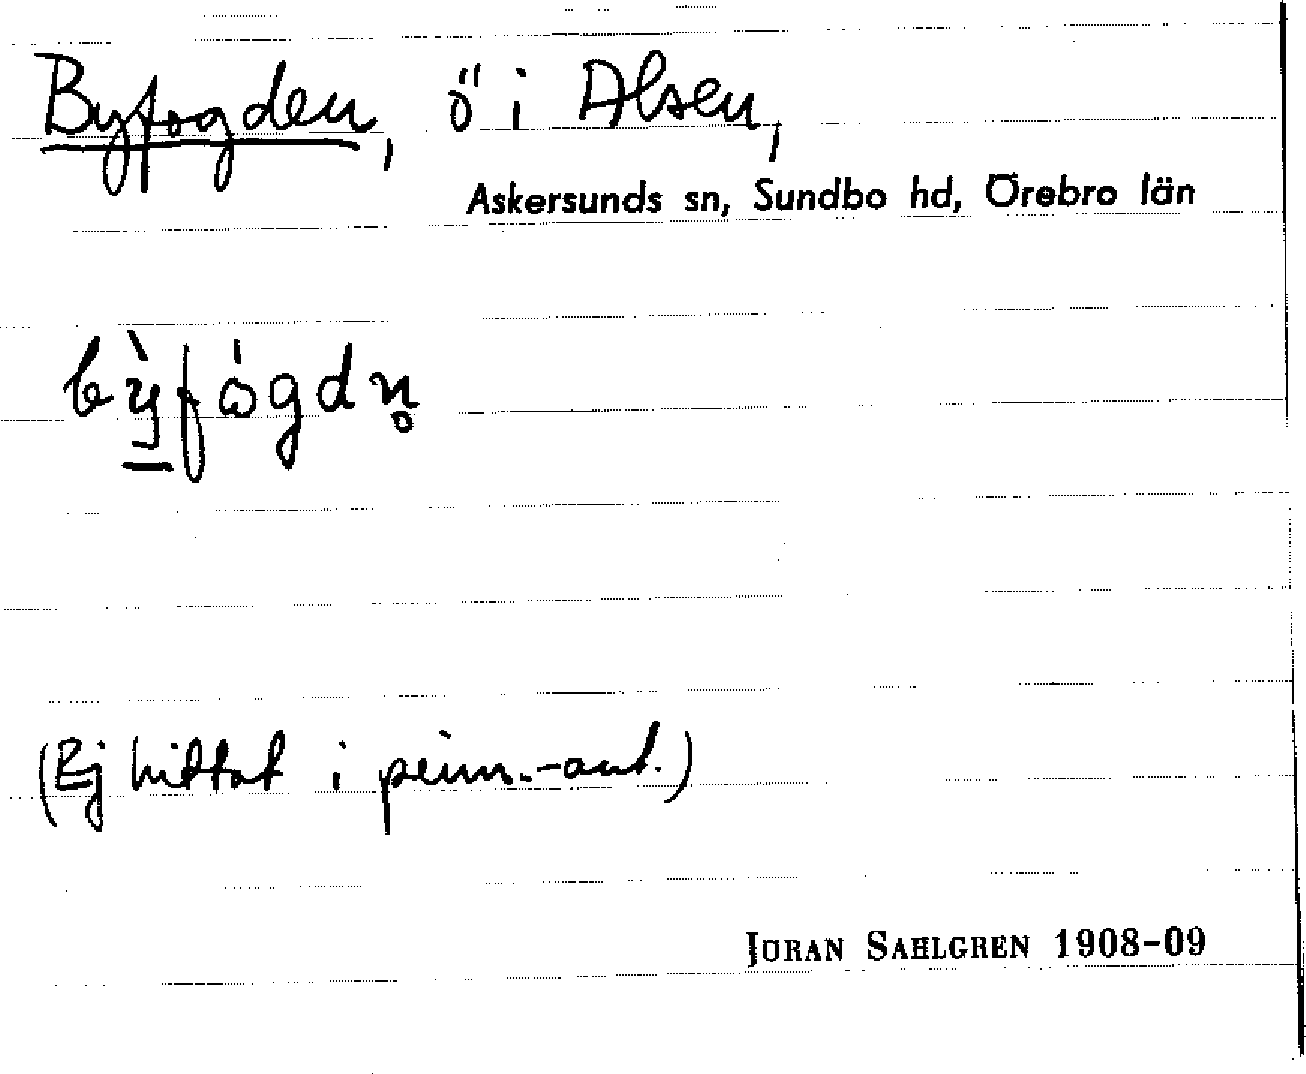 Byfogden, ö i Alsen,
Askersunds sn, Sundbo hd, Örebro län
bỳfógdn̥
(Ej hittat i prim.-ant.)
JÖRAN SAHLGREN 1908-09